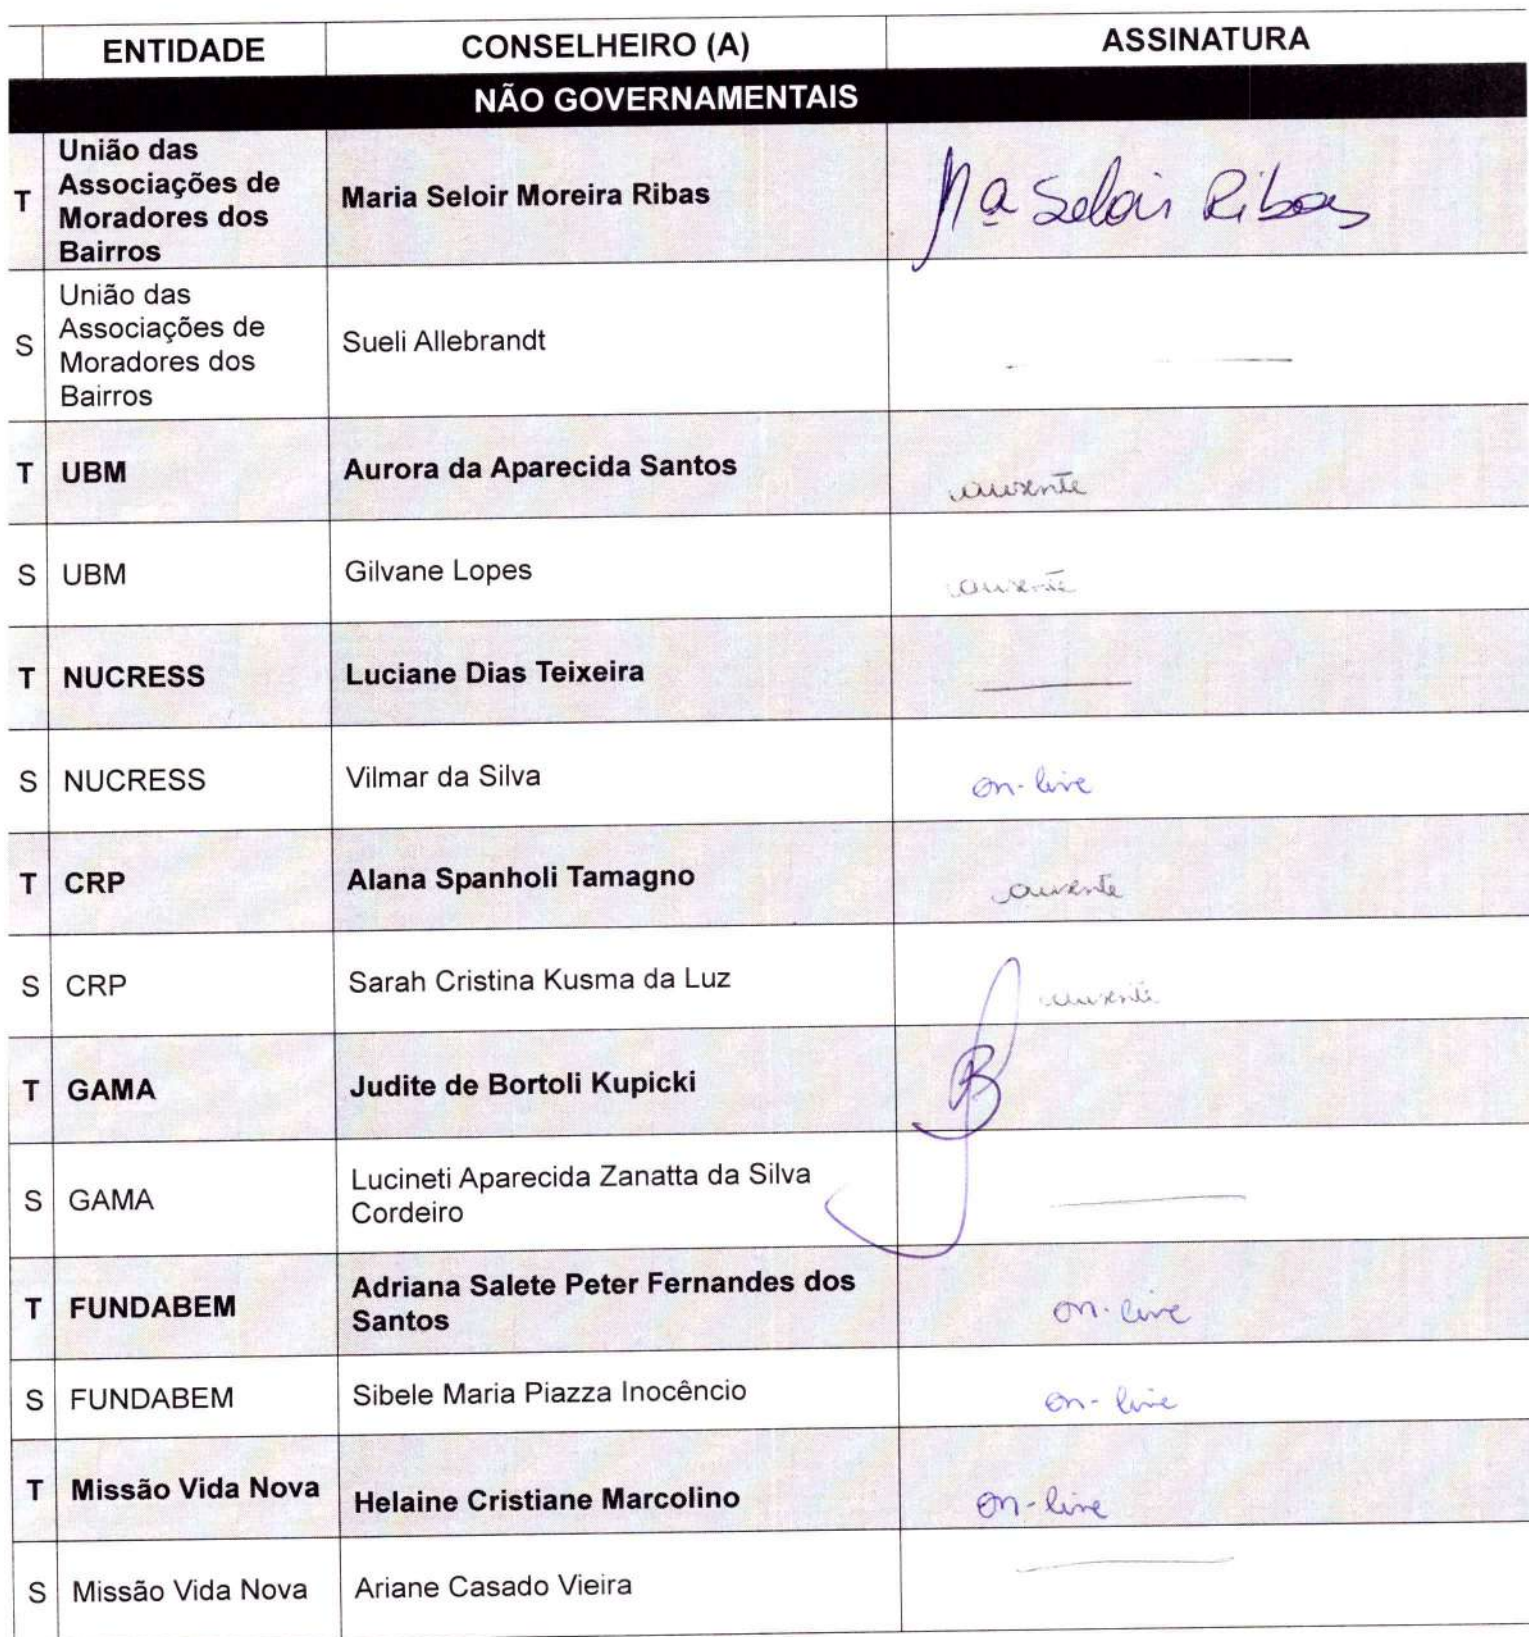 ENTIDADE CONSELHEIRO (A) ASSINATURA
NÃO GOVERNAMENTAIS
T União das Associações de Moradores dos Bairros Maria Seloir Moreira Ribas Mª Seloir Ribas
S União das Associações de Moradores dos Bairros Sueli Allebrandt
T UBM Aurora da Aparecida Santos ausente
S UBM Gilvane Lopes ausente
T NUCRESS Luciane Dias Teixeira
S NUCRESS Vilmar da Silva on-line
T CRP Alana Spanholi Tamagno ausente
S CRP Sarah Cristina Kusma da Luz ausente
T GAMA Judite de Bortoli Kupicki
S GAMA Lucineti Aparecida Zanatta da Silva Cordeiro
T FUNDABEM Adriana Salete Peter Fernandes dos Santos on-line
S FUNDABEM Sibele Maria Piazza Inocêncio on-line
T Missão Vida Nova Helaine Cristiane Marcolino on-line
S Missão Vida Nova Ariane Casado Vieira